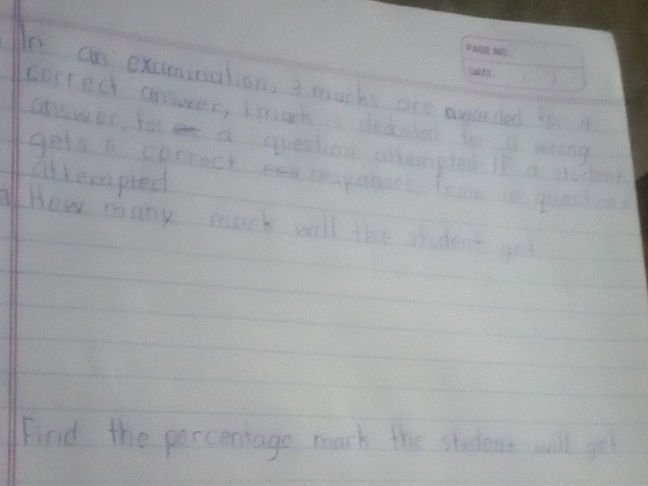 PAGE NO.
DATE
In an examination, 3 marks are awarded for a
correct answer, 1 mark is deducted for a wrong
answer, for a question attempted If a student
gets 6 correct responses from 10 questions
attempted
a How many mark will the student get
Find the percentage mark the student will get